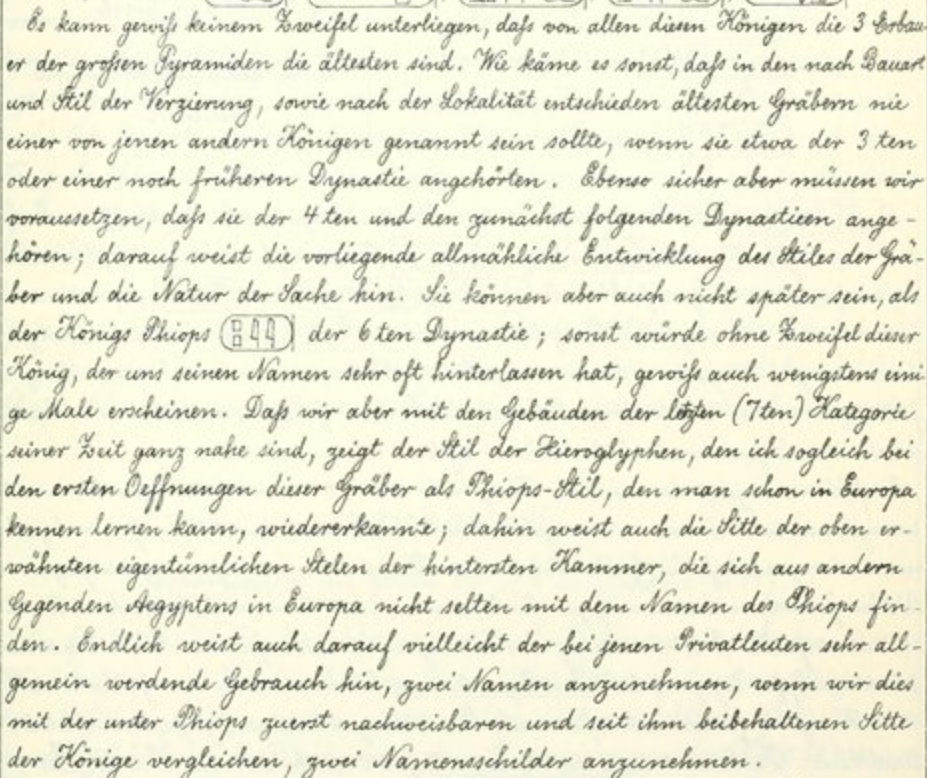 Es kann gewiſs keinem Zweifel unterliegen, daſs von allen diesen Königen die 3 Erbau-
er der groſsen Pyramiden die ältesten sind. Wie käme es sonst, daſs in den nach Bauart
und Stil der Verzierung, sowie nach der Lokalität entschieden ältesten Gräbern nie
einer von jenen andern Königen genannt sein sollte, wenn sie etwa der 3 ten
oder einer noch früheren Dynastie angehörten. Ebenso sicher aber müssen wir
voraussetzen, daſs sie der 4 ten und den zunächst folgenden Dynastieen ange-
hören; darauf weist die vorliegende allmähliche Entwicklung des Stiles der Grä-
ber und die Natur der Sache hin. Sie können aber auch nicht später sein, als
der Königs Phiops der 6 ten Dynastie; sonst würde ohne Zweifel dieser
König, der uns seinen Namen sehr oft hinterlassen hat, gewiſs auch wenigstens eini
ge Male erscheinen. Daſs wir aber mit den Gebäuden der letzten (7ten) Kategorie
seiner Zeit ganz nahe sind, zeigt der Stil der Hieroglyphen, den ich sogleich bei
den ersten Oeffnungen dieser Gräber als Phiops-Stil, den man schon in Europa
kennen lernen kann, wiedererkannte; dahin weist auch die Sitte der oben er-
wähnten eigentümlichen Stelen der hintersten Kammer, die sich aus andern
Gegenden Aegyptens in Europa nicht selten mit dem Namen des Phiops fin-
den. Endlich weist auch darauf vielleicht der bei jenen Privatleuten sehr all-
gemein werdende Gebrauch hin, zwei Namen anzunehmen, wenn wir dies
mit der unter Phiops zuerst nachweisbaren und seit ihm beibehaltenen Sitte
der Könige vergleichen, zwei Namensschilder anzunehmen.